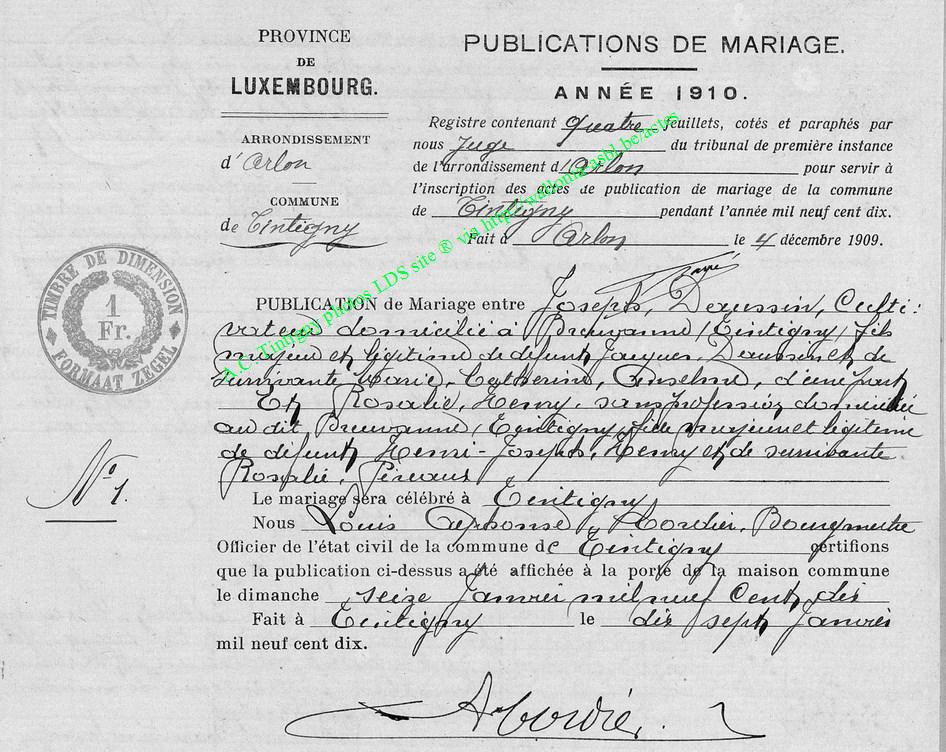 PROVINCE
DE
LUXEMBOURG.
ARRONDISSEMENT
d'Arlon
COMMUNE
de Tintigny
PUBLICATIONS DE MARIAGE.
ANNÉE 1910.
Registre contenant quatre feuillets, cotés et paraphés par
nous Juge du tribunal de première instance
de l'arrondissement d'Arlon pour servir à
l'inscription des actes de publication de mariage de la commune
de Tintigny pendant l'année mil neuf cent dix.
Fait à Arlon le 4 décembre 1909.
TIMBRE DE DIMENSION
1
Fr.
FORMAAT ZEGEL
A.C. Tintigny photos LDS site ® via http://wallonia.asbl.be/actes
PUBLICATION de Mariage entre Joseph, Daussin, Culti:
vateur domicilié à Breuvanne (Tintigny) fils
majeur et légitime de défunt Jacques, Daussin et de
survivante Marie, Catherine, Anselme, d'une part
Et Rosalie, Henry, sans profession domiciliée
au dit Breuvanne, (Tintigny) fille majeure et légitime
de défunt Henri-Joseph, Henry et de survivante
Rosalie,
Le mariage sera célébré à Tintigny
Nous Louis Alphonse, Bourgmestre
Officier de l'état civil de la commune de Tintigny certifions
que la publication ci-dessus a été affichée à la porte de la maison commune
le dimanche seize Janvier mil neuf Cent dix
Fait à Tintigny le dix sept Janvier
mil neuf cent dix.
N° 1.